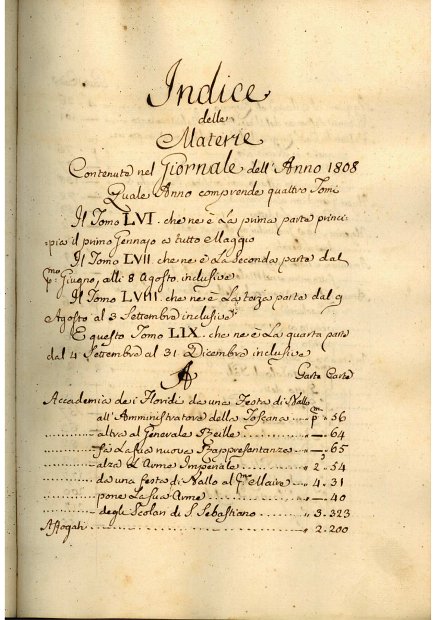 Indice
delle
Materie
Contenute nel Giornale dell'Anno 1808
Quale Anno comprende quattro Tomi
Il Tomo LVI. che ne è La prima parte princi-
pia il primo Gennajo a tutto Maggio
Il Tomo LVII che ne è La Seconda parte dal
p:mo Giugno, alli 8 Agosto inclusive
Il Tomo LVIII che ne è La terza parte dal 9
Agosto al 3 Settembre inclusive
E questo Tomo LIX. che ne è La quarta parte
dal 4 Settembre al 31 Dicembre inclusive
A
Parte Carte
Accademia dei Floridi da una Festa di Ballo
all'Amministratore della Toscana p:mo " 56
altra al Generale Reille " — 64
fà La sua nuova Rappresentanza " — 65
alza L'Arme Imperiale " 2. 54
da una festa di Ballo al Maire " 4. 31
pone La sua Arme " — 40
degli Scolari di S. Sebastiano " 3. 323
Affogati " 2. 200